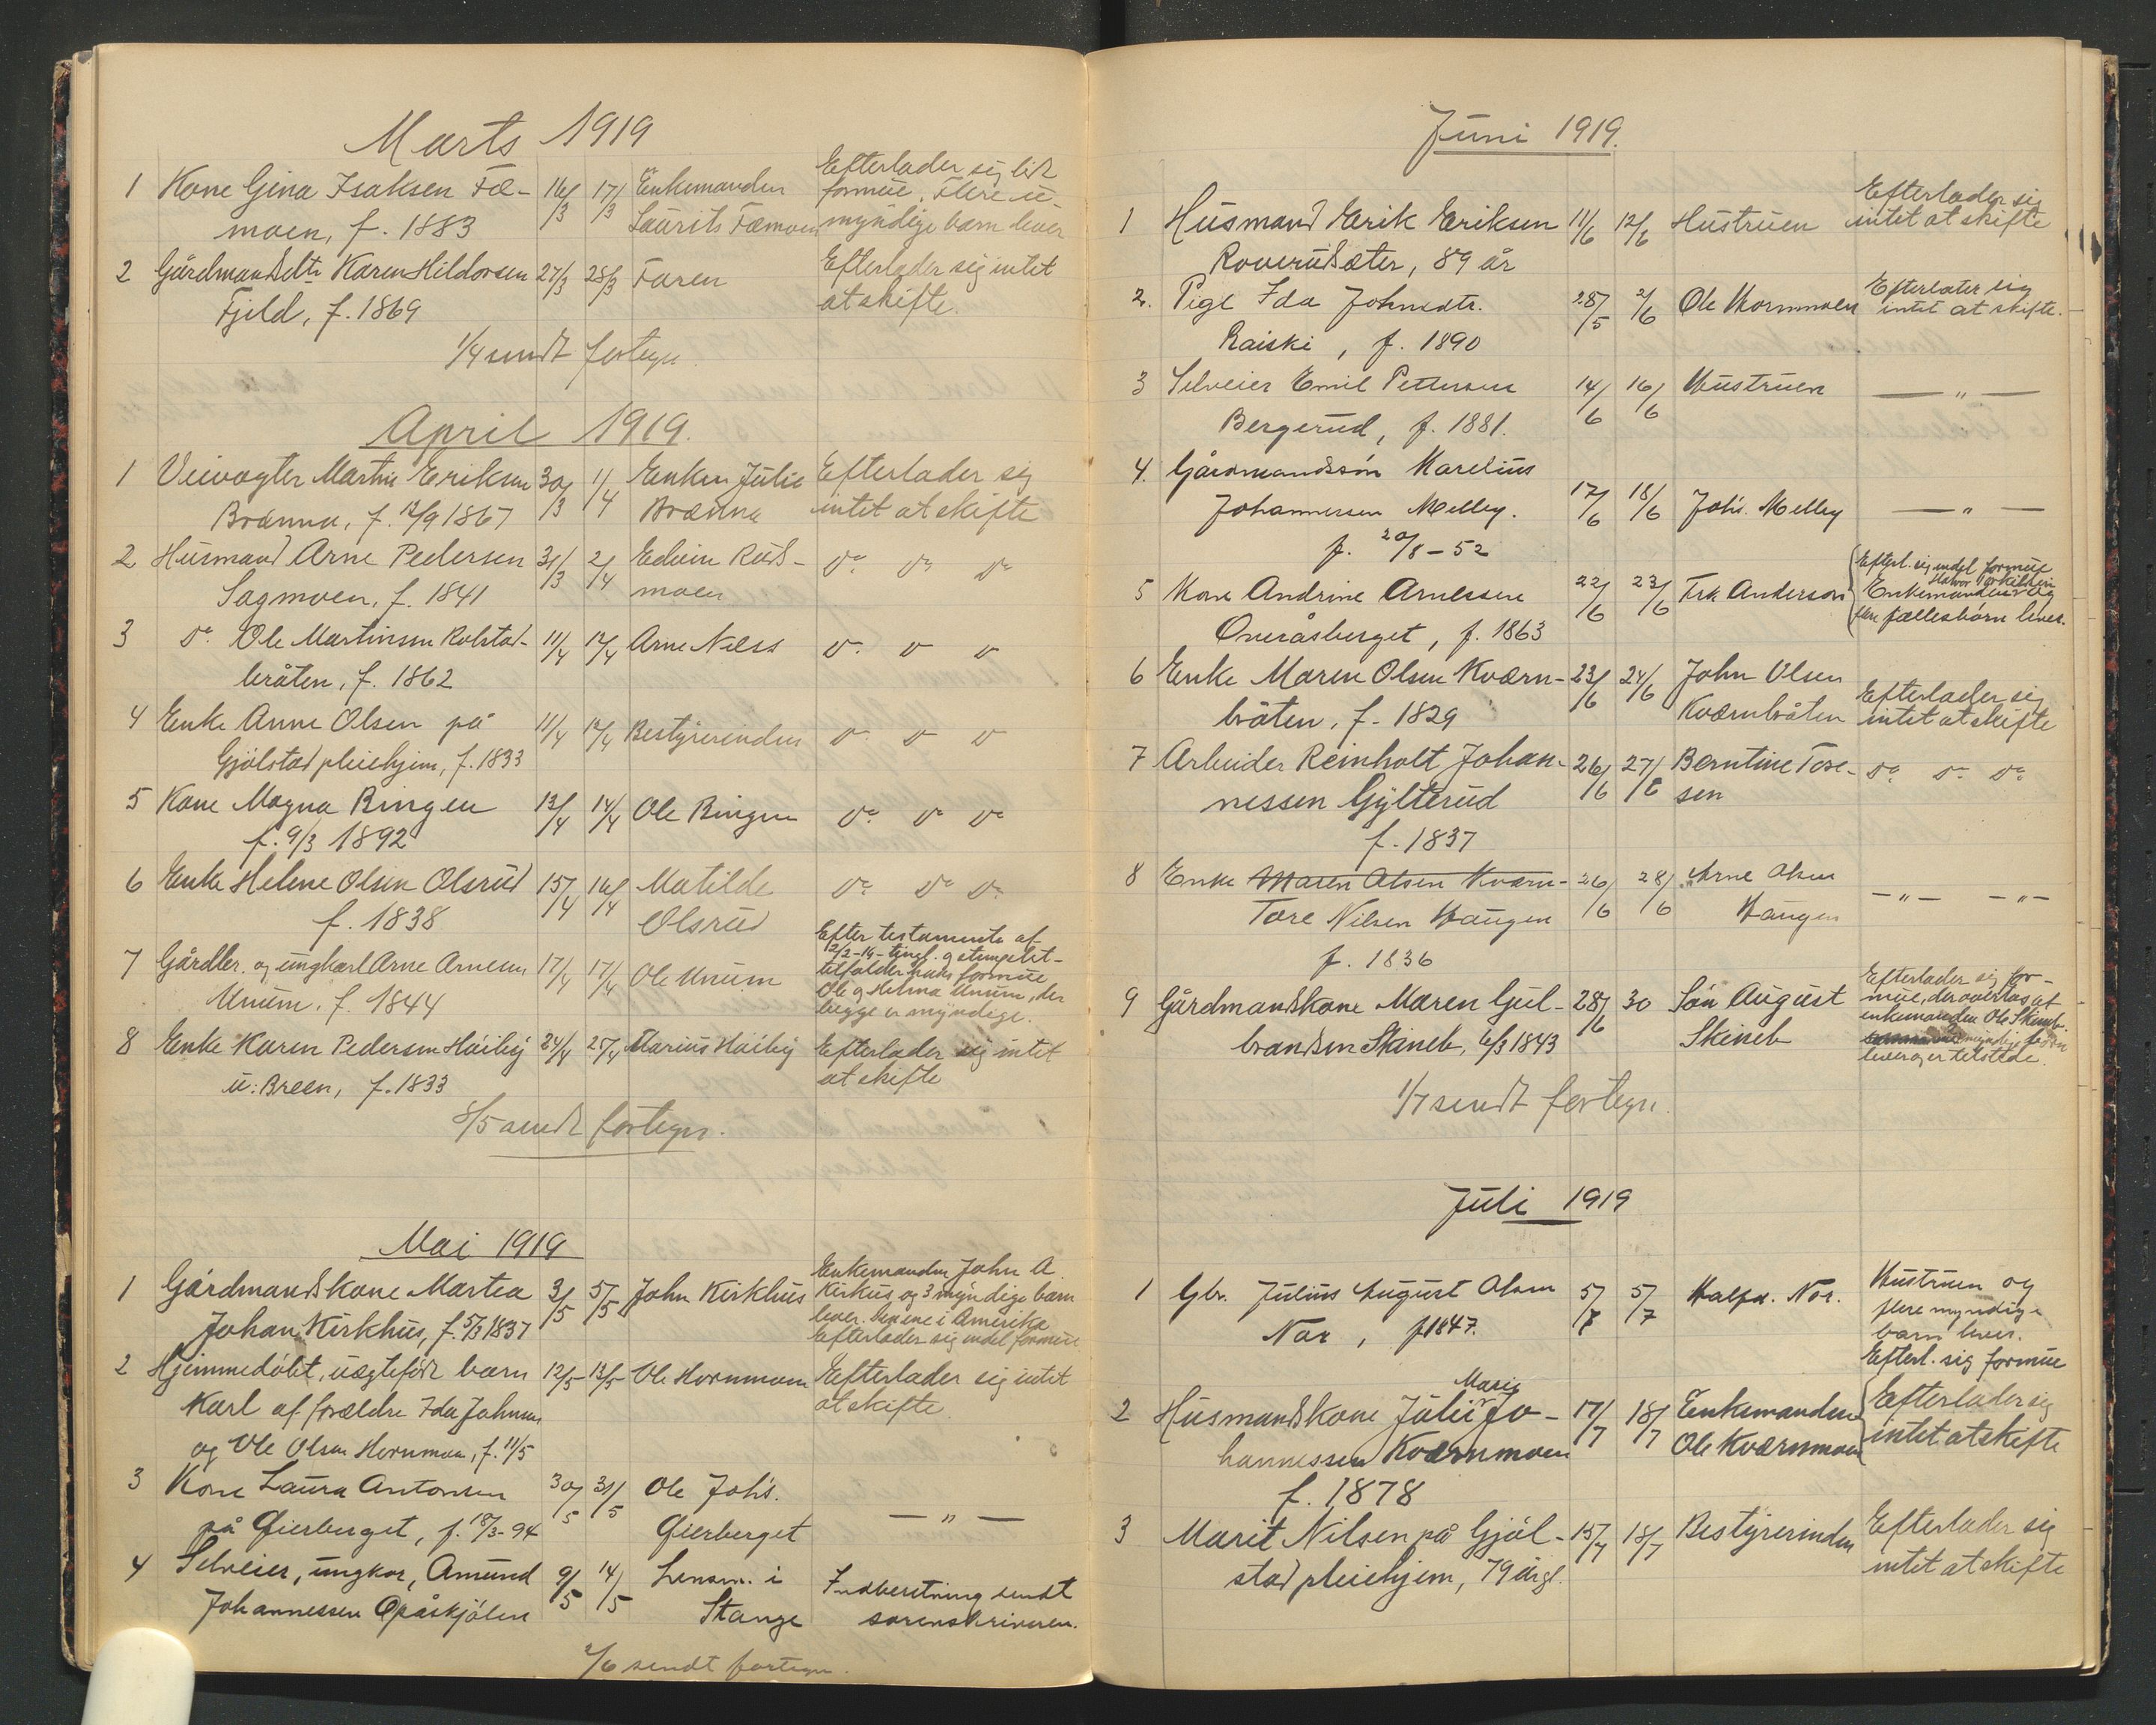 Marts 1919
1 Kone Gina Isaksen Fæ- 16/3 17/3 Enkemanden Efterlader sig lit
moen, f. 1883 Laurits Fæmoen formue. Flere u-
myndige barn lever
2 Gårdmandsdtr Karen Hildorsen 27/3 28/3 Faren Efterlader sig intet
Fjeld, f. 1869 at skifte.
1/4 sendt fortegn.
April 1919.
1 Veivogter Martin Eriksen 30/3 1/4 Enken Julie Efterlader sig
Brænna, f. 12/9 1867 Brænna intet at skifte
2 Husmand Arne Pedersen 31/3 2/4 Edvin Ruds- Do Do Do
Sagmoen, f. 1841 moen
3 Do Ole Martinsen Rolstad- 11/4 12/4 Arne Næss Do Do Do
bråten, f. 1862
4 Enke Anne Olsen på 11/4 12/4 Bestyrerinden Do Do Do
Gjölstad pleiehjem, f. 1833
5 Kone Magna Ringen 13/4 14/4 Ole Ringen Do Do Do
f. 9/3 1892
6 Enke Helene Olsen Olsrud 15/4 16/4 Matilde Do Do Do
f. 1838 Olsrud
7 Gårdbr. og ungkarl Arne Arnesen 17/4 17/4 Ole Unum Efter testamente af
Unum, f. 1844 12/2-14- tingl. og stemplet-
tilfalder hans formue
Ole og Helma Unum, der
begge er myndige.
8 Enke Karen Pedersen Höiby 24/4 25/4 Marius Höiby Efterlader sig intet
u: Breen, f. 1833 at skifte
8/5 sendt fortegn.
Mai 1919
1 Gårdmandskone Martea 3/5 5/5 John Kirkhus Enkemanden John A
Johan. Kirkhus, f. 5/3 1837 Kirkus og 3 myndige barn
lever. den ene i Amerika
Efterlader sig endel formue
2 Hjemmedöbt, uægteföt barn 12/5 13/5 Ole Hornmoen Efterlader sig intet
Karl af forældre Ida Johnsen at skifte
og Ole Olsen Hornmoen, f. 11/5
3 Kone Laura Antonsen 30/5 31/5 Ole Johs. — " —
på Øierberget, f. 18/3-94 Øierberget
4 Selveier, ungkar, Amund 9/5 14/5 Lensm. i Indberetning sendt
Johannessen Opåskjölen Stange sorenskriveren.
2/6 sendt fortegn.
Juni 1919.
1 Husmand Erik Eriksen 11/6 12/6 Hustruen Efterlader sig
Roverudsæter, 89 år intet at skifte
2. Pige Ida Johnsdtr. 28/5 2/6 Ole Hornmoen Efterlater sig
Raiski, f. 1890 intet at skifte.
3 Selveier Emil Pettersen 14/6 16/6 Hustruen — " —
Bergerud, f. 1881.
4. Gårdmandssön Karelius
Johannersen Melby. 17/6 18/6 Johs. Melby — " —
f. 20/8 - 52
5 Kone Andrine Arnessen 22/6 23/6 Frk Anderson Efterl. sig endel formue
Overåsberget, f. 1863 Enkemanden Halvor Torkildsen og
flere fællesbörn lever.
6 Enke Maren Olsen Kværn- 23/6 24/6 John Olsen Efterlader sig
bråten, f. 1829 Kværnbråten intet at skifte
7 Arbeider Reinholt Johan- 26/6 27/6 Berntine Tore- Do Do Do
nessen Gylterud sen
f. 1837
8 Enke Maren Olsen Kværn- 26/6 28/6 Arne Olsen - " - - " -
Tore Nilsen Haugen Haugen
f. 1836
9 Gårdmandskone Maren Gul- 28/6 30 Sön August Efterlader sig for-
brandsen Skineb, 6/3 1843 Skineb mue, der overtas af
enkemanden Ole Skineb.
myndige börn
lever og er tilstede.
1/7 sendt fortegn.
Juli 1919
1 Gbr. Julius August Olsen 5/7 5/7 Halfd. Nor. Hustruen og
Nor, f 1847. flere myndige
barn lever.
Efterl. sig formue
2 Husmandskone Julie Marie Jo- 17/7 18/7 Enkemanden Efterlader sig
hannessen Kværnmoen Ole Kværnmoen intet at skifte
f. 1878
3 Marit Nilsen på Gjöl- 15/7 18/7 Bestyrerinden Efterlader sig
stad pleiehjem, 79 årgl. intet at skifte